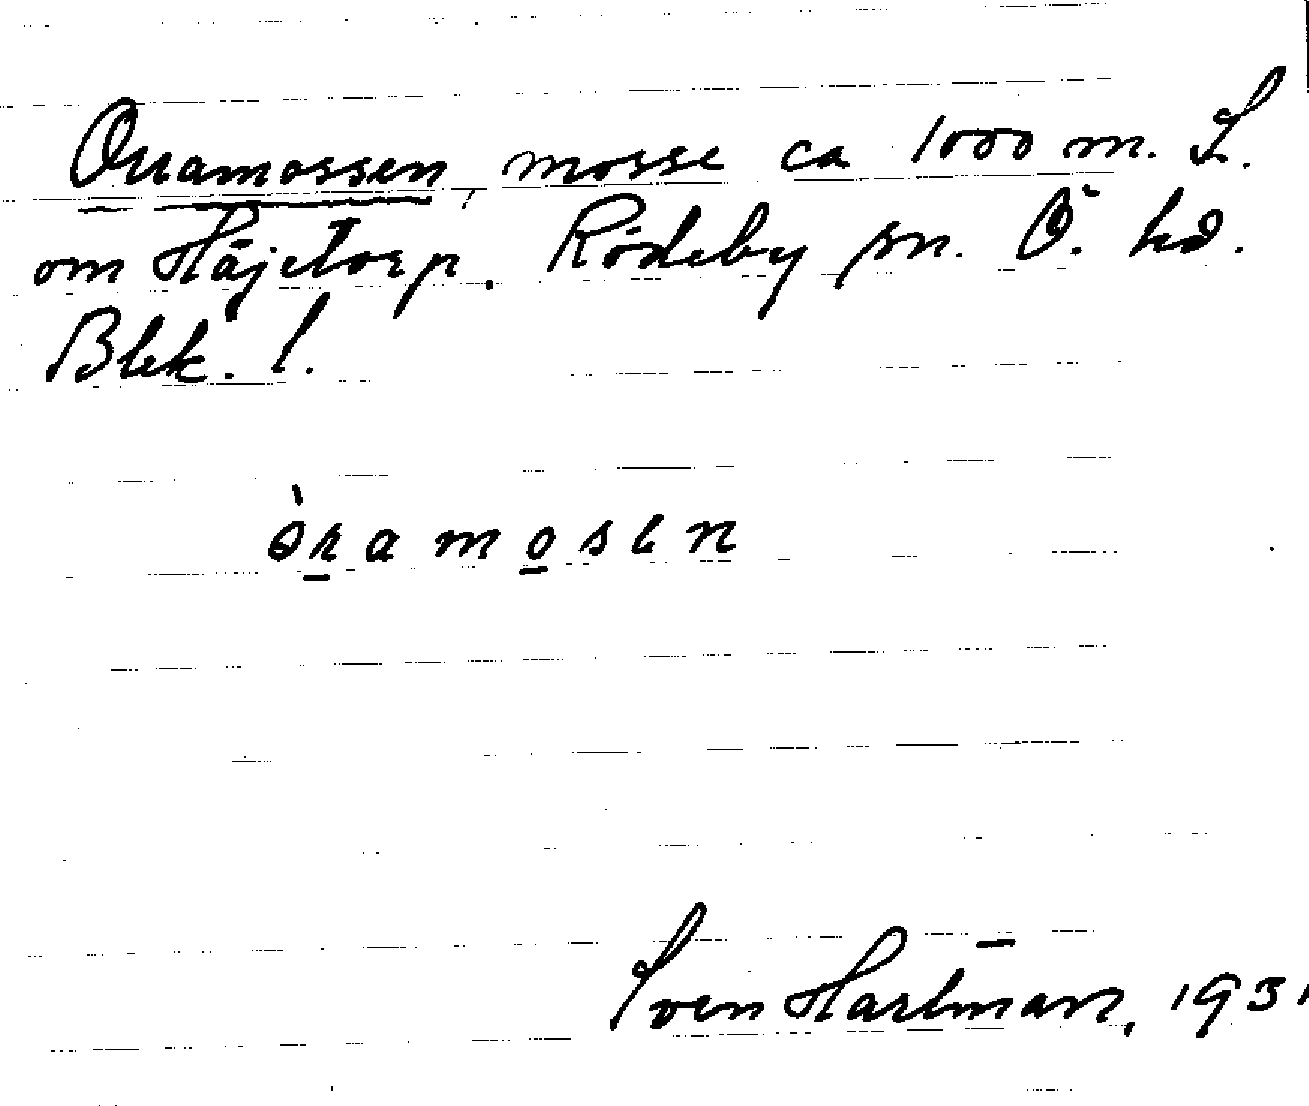 Orramossen, mosse ca 1000 m. S.
om Häjetorp. Rödeby sn. Ö. hd.
Blek. l.
òramosen
Sven Hartman, 1931